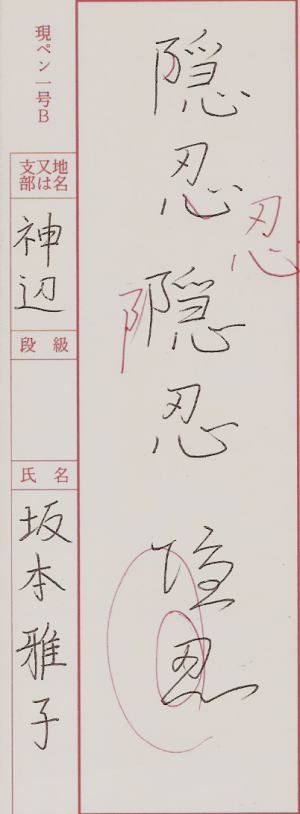 隠忍隠忍隠忍
忍
阝
現ペン一号B
地名又は支部
神辺
段級
氏名
坂本雅子